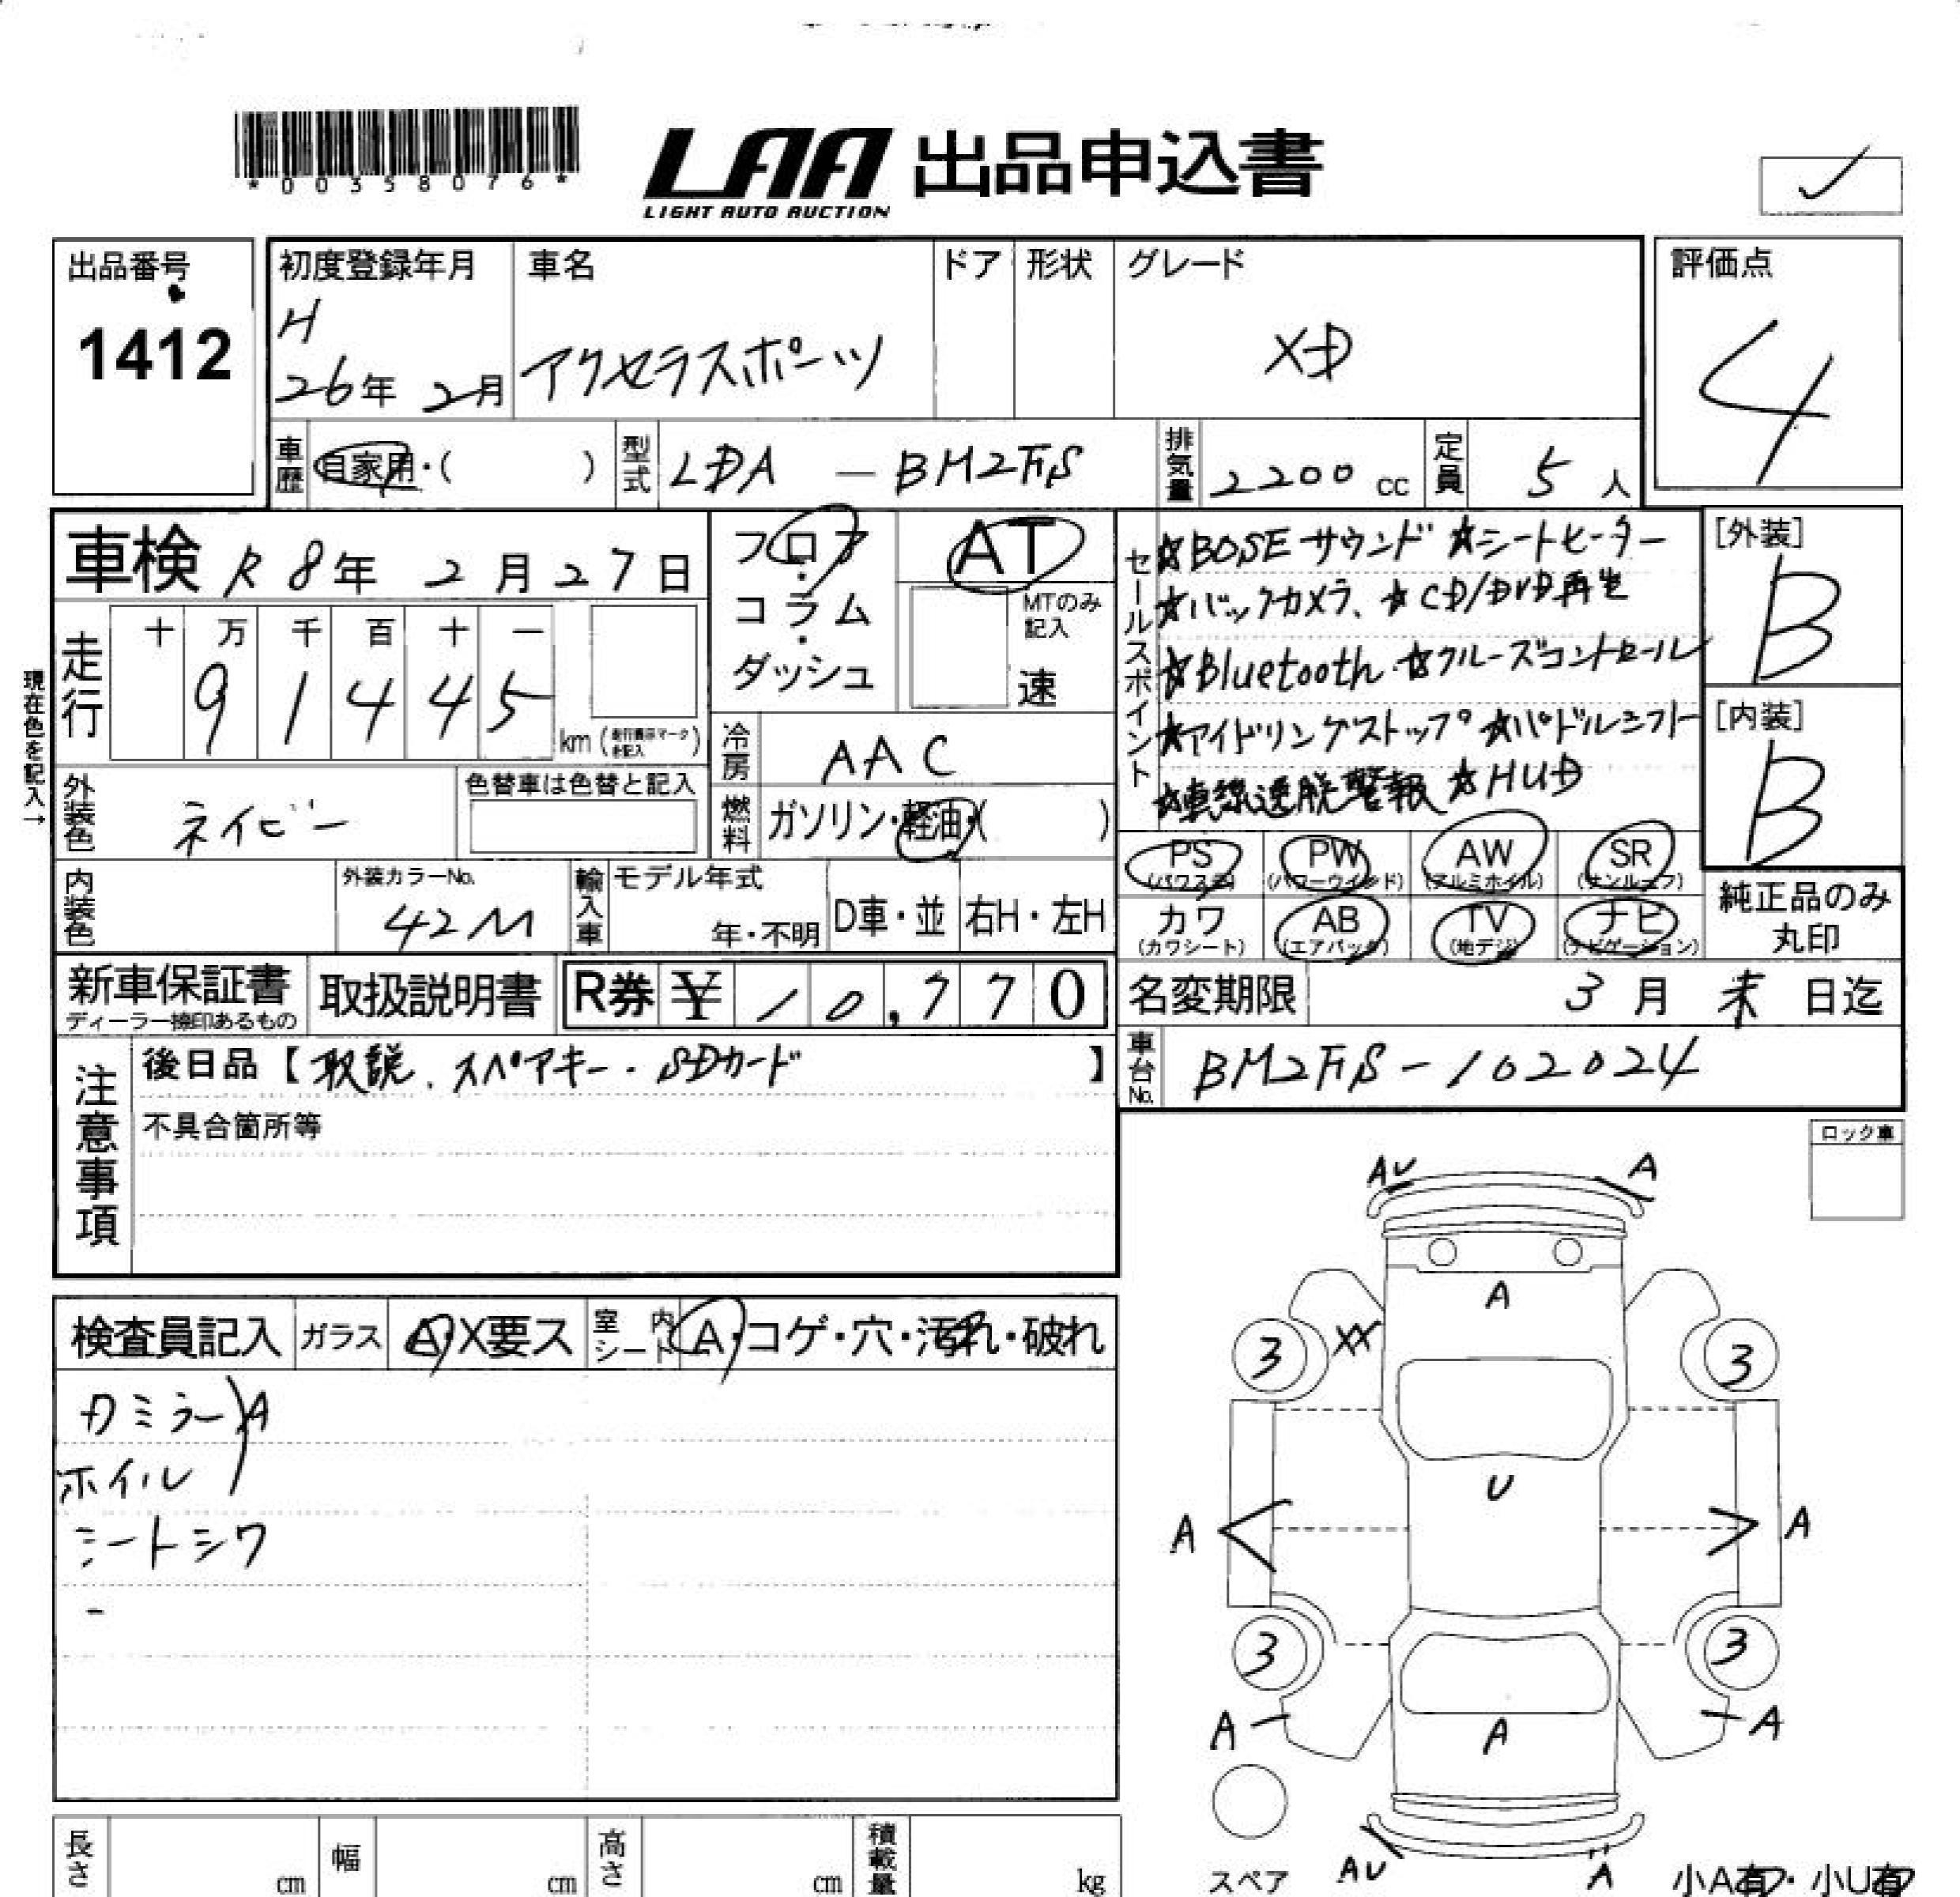 *00358076*
LAA 出品申込書
LIGHT AUTO AUCTION
✓
出品番号
1412
初度登録年月
H
26年 2月
車名
アクセラスポーツ
ドア
形状
グレード
XD
評価点
4
車歴
自家用・( )
型式
LDA — BM2FS
排気量
2200 cc
定員
5 人
車検 R 8年 2月 27日
フロア・コラム・ダッシュ
AT
MTのみ記入
速
セールスポイント
☆BOSEサウンド ☆シートヒーター
☆バックカメラ、☆CD/DVD再生
☆Bluetooth ☆クルーズコントロール
☆アイドリングストップ ☆パドルシフト
☆車線逸脱警報 ☆HUD
[外装]
B
[内装]
B
現在色を記入→
走行
十 万 千 百 十 一
9 1 4 4 5
km (走行表示マークを記入)
冷房
AAC
外装色
ネイビー
色替車は色替と記入
燃料
ガソリン・軽油・( )
PS (パワステ)
PW (パワーウインド)
AW (アルミホイル)
SR (サンルーフ)
カワ (カワシート)
AB (エアバック)
TV (地デジ)
ナビ (ナビゲーション)
純正品のみ丸印
内装色
外装カラーNo.
42M
輸入車
モデル年式
年・不明
D車・並
右H・左H
新車保証書
ディーラー捺印あるもの
取扱説明書
R券 ¥ 10,770
名変期限
3月 末日迄
注意事項
後日品【取説、スペアキー・SDカード】
不具合箇所等
車台No.
BM2FS-102024
ロック車
AU A
A
3 XX 3
U
A A
3 3
A A
A
スペア
AU A
小A有・小U有
検査員記入
ガラス
A・X要ス
室内シート
A・コゲ・穴・汚れ・破れ
カミラー)A
ホイル
シートシワ
長さ cm
幅 cm
高さ cm
積載量 kg